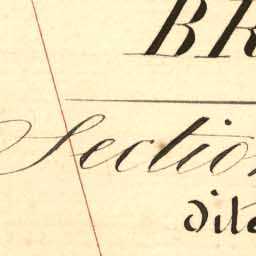 BR
Section
dite